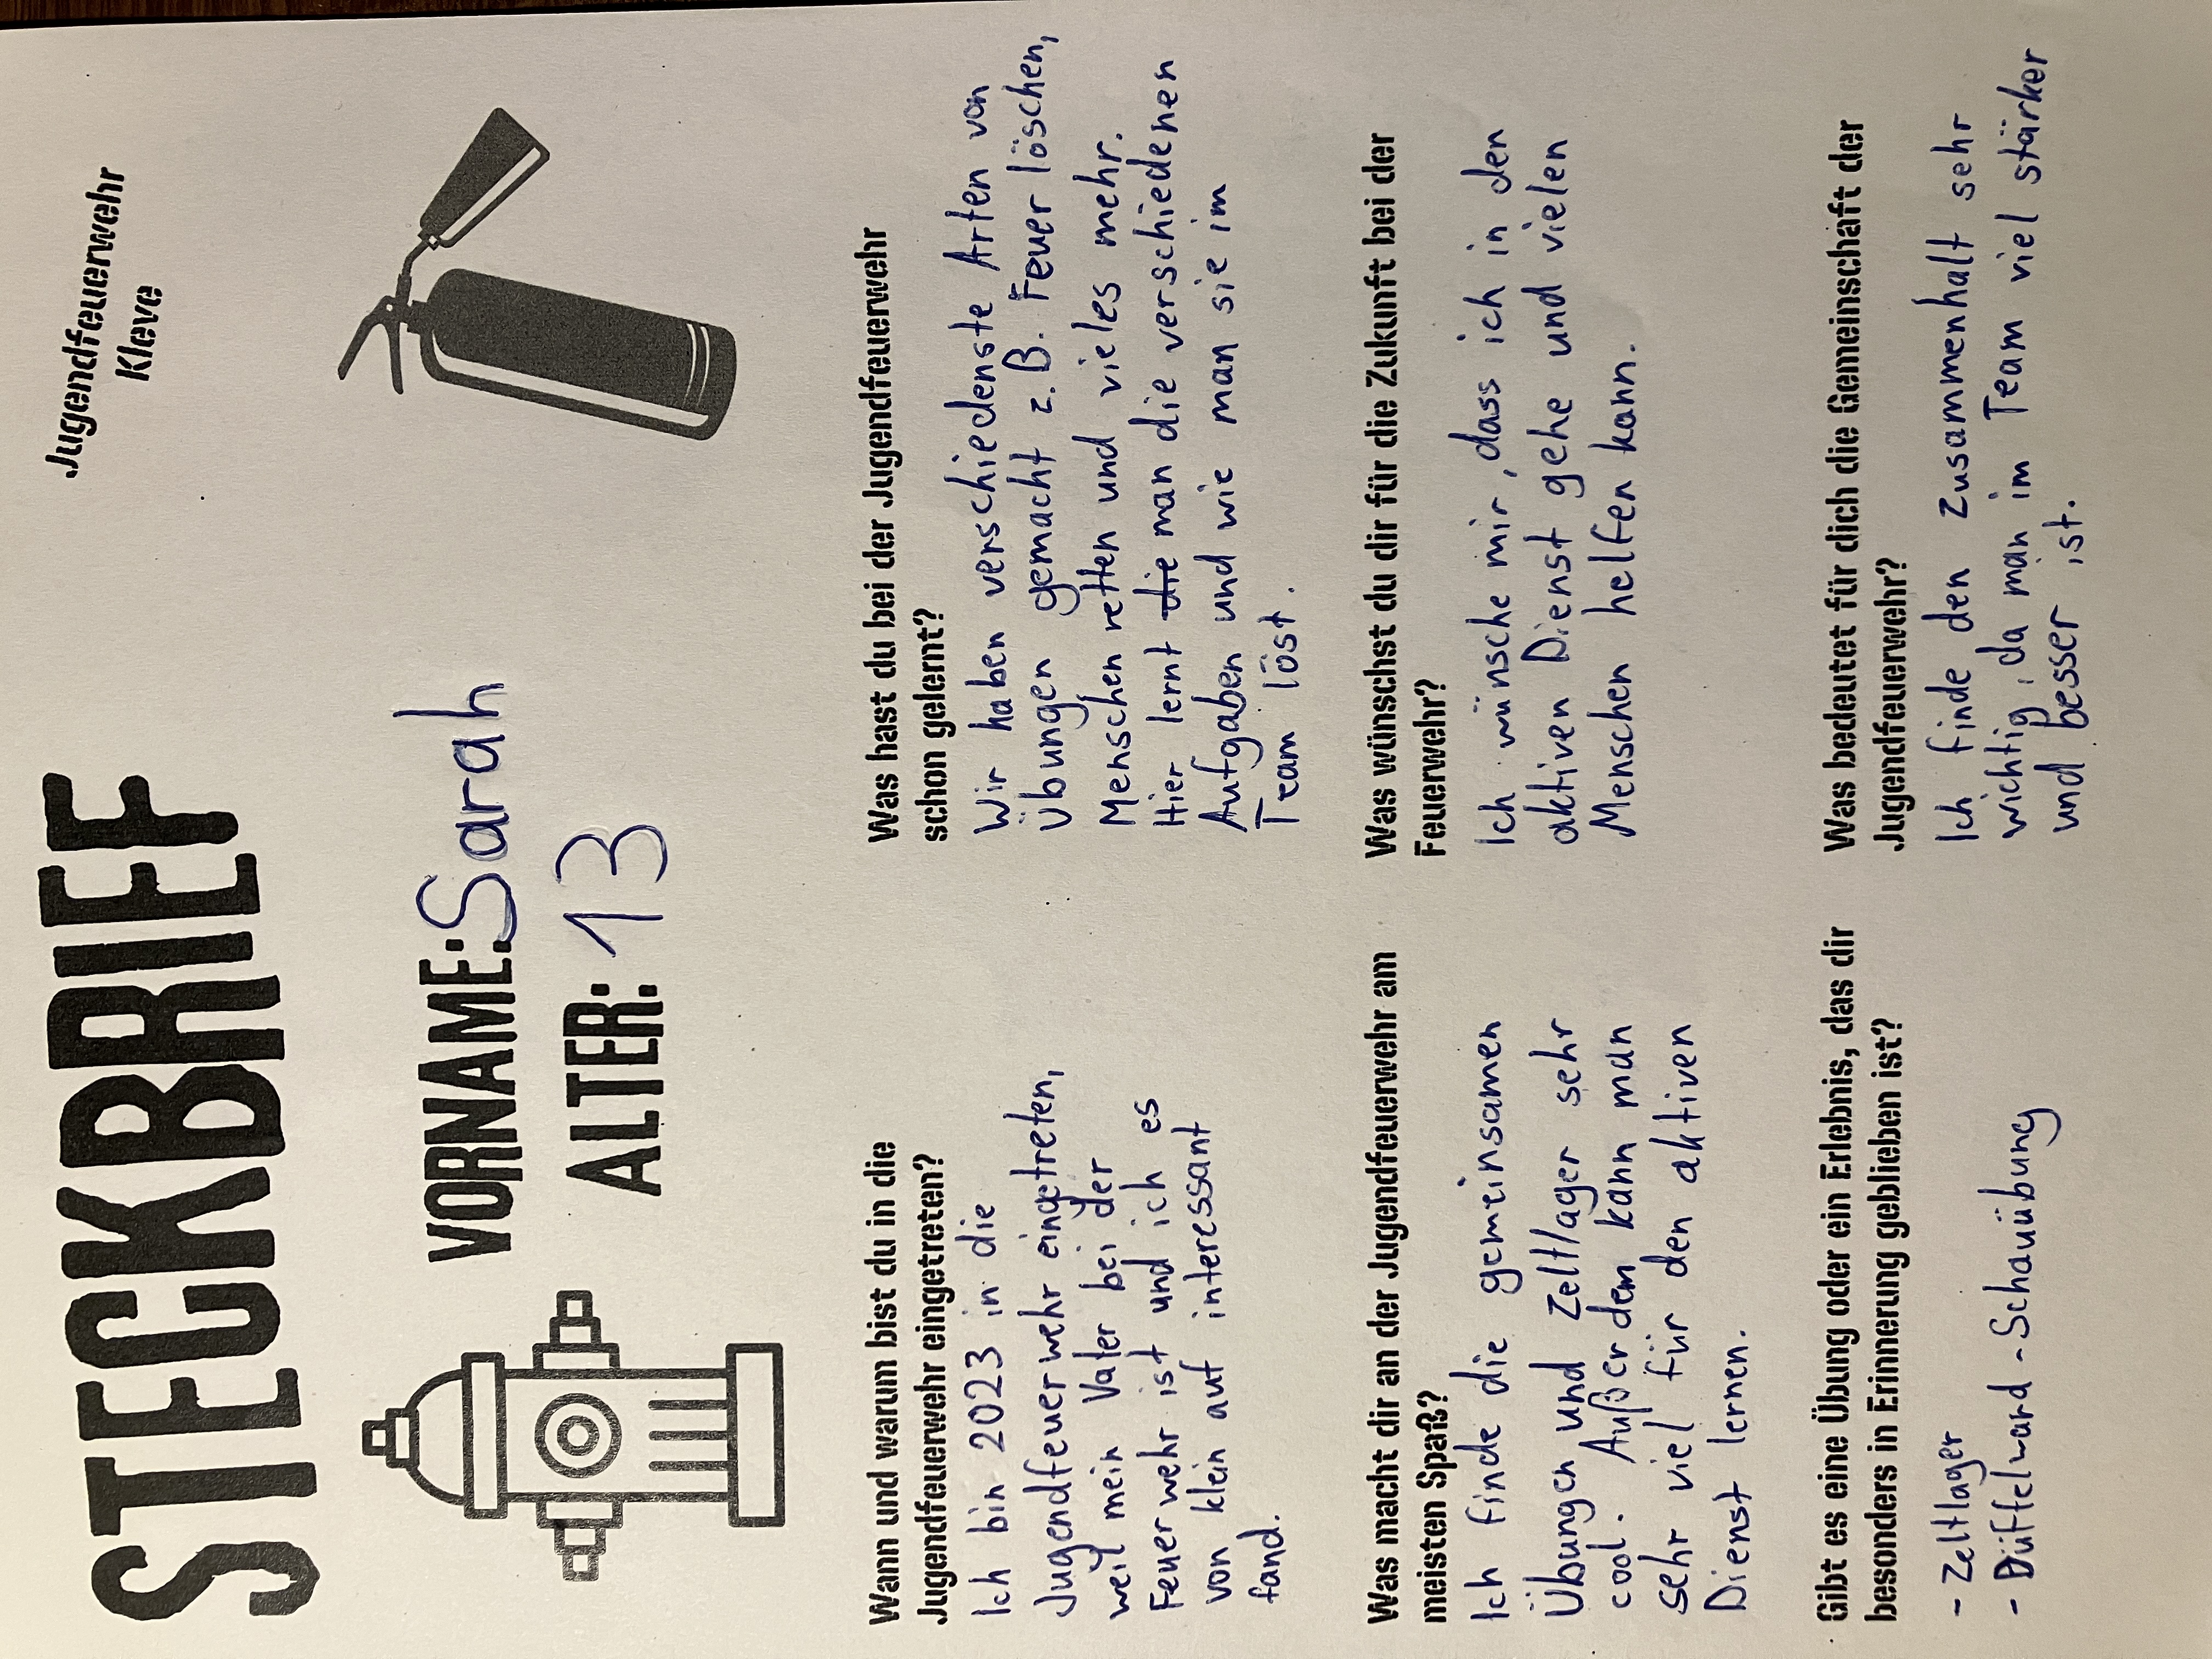 Jugendfeuerwehr
Kleve
STECKBRIEF
VORNAME: Sarah
ALTER: 13
Wann und warum bist du in die
Jugendfeuerwehr eingetreten?
Ich bin 2023 in die
Jugendfeuerwehr eingetreten,
weil mein Vater bei der
Feuerwehr ist und ich es
von klein auf interessant
fand.
Was hast du bei der Jugendfeuerwehr
schon gelernt?
Wir haben verschiedenste Arten von
Übungen gemacht z.B. Feuer löschen,
Menschen retten und vieles mehr.
Hier lernt die man die verschiedenen
Aufgaben und wie man sie im
Team löst.
Was macht dir an der Jugendfeuerwehr am
meisten Spaß?
Ich finde die gemeinsamen
Übungen und Zeltlager sehr
cool. Außerdem kann man
sehr viel für den aktiven
Dienst lernen.
Was wünschst du dir für die Zukunft bei der
Feuerwehr?
Ich wünsche mir, dass ich in den
aktiven Dienst gehe und vielen
Menschen helfen kann.
Gibt es eine Übung oder ein Erlebnis, das dir
besonders in Erinnerung geblieben ist?
- Zeltlager
- Düffelward - Schauübung
Was bedeutet für dich die Gemeinschaft der
Jugendfeuerwehr?
Ich finde den Zusammenhalt sehr
wichtig, da man im Team viel stärker
und besser ist.